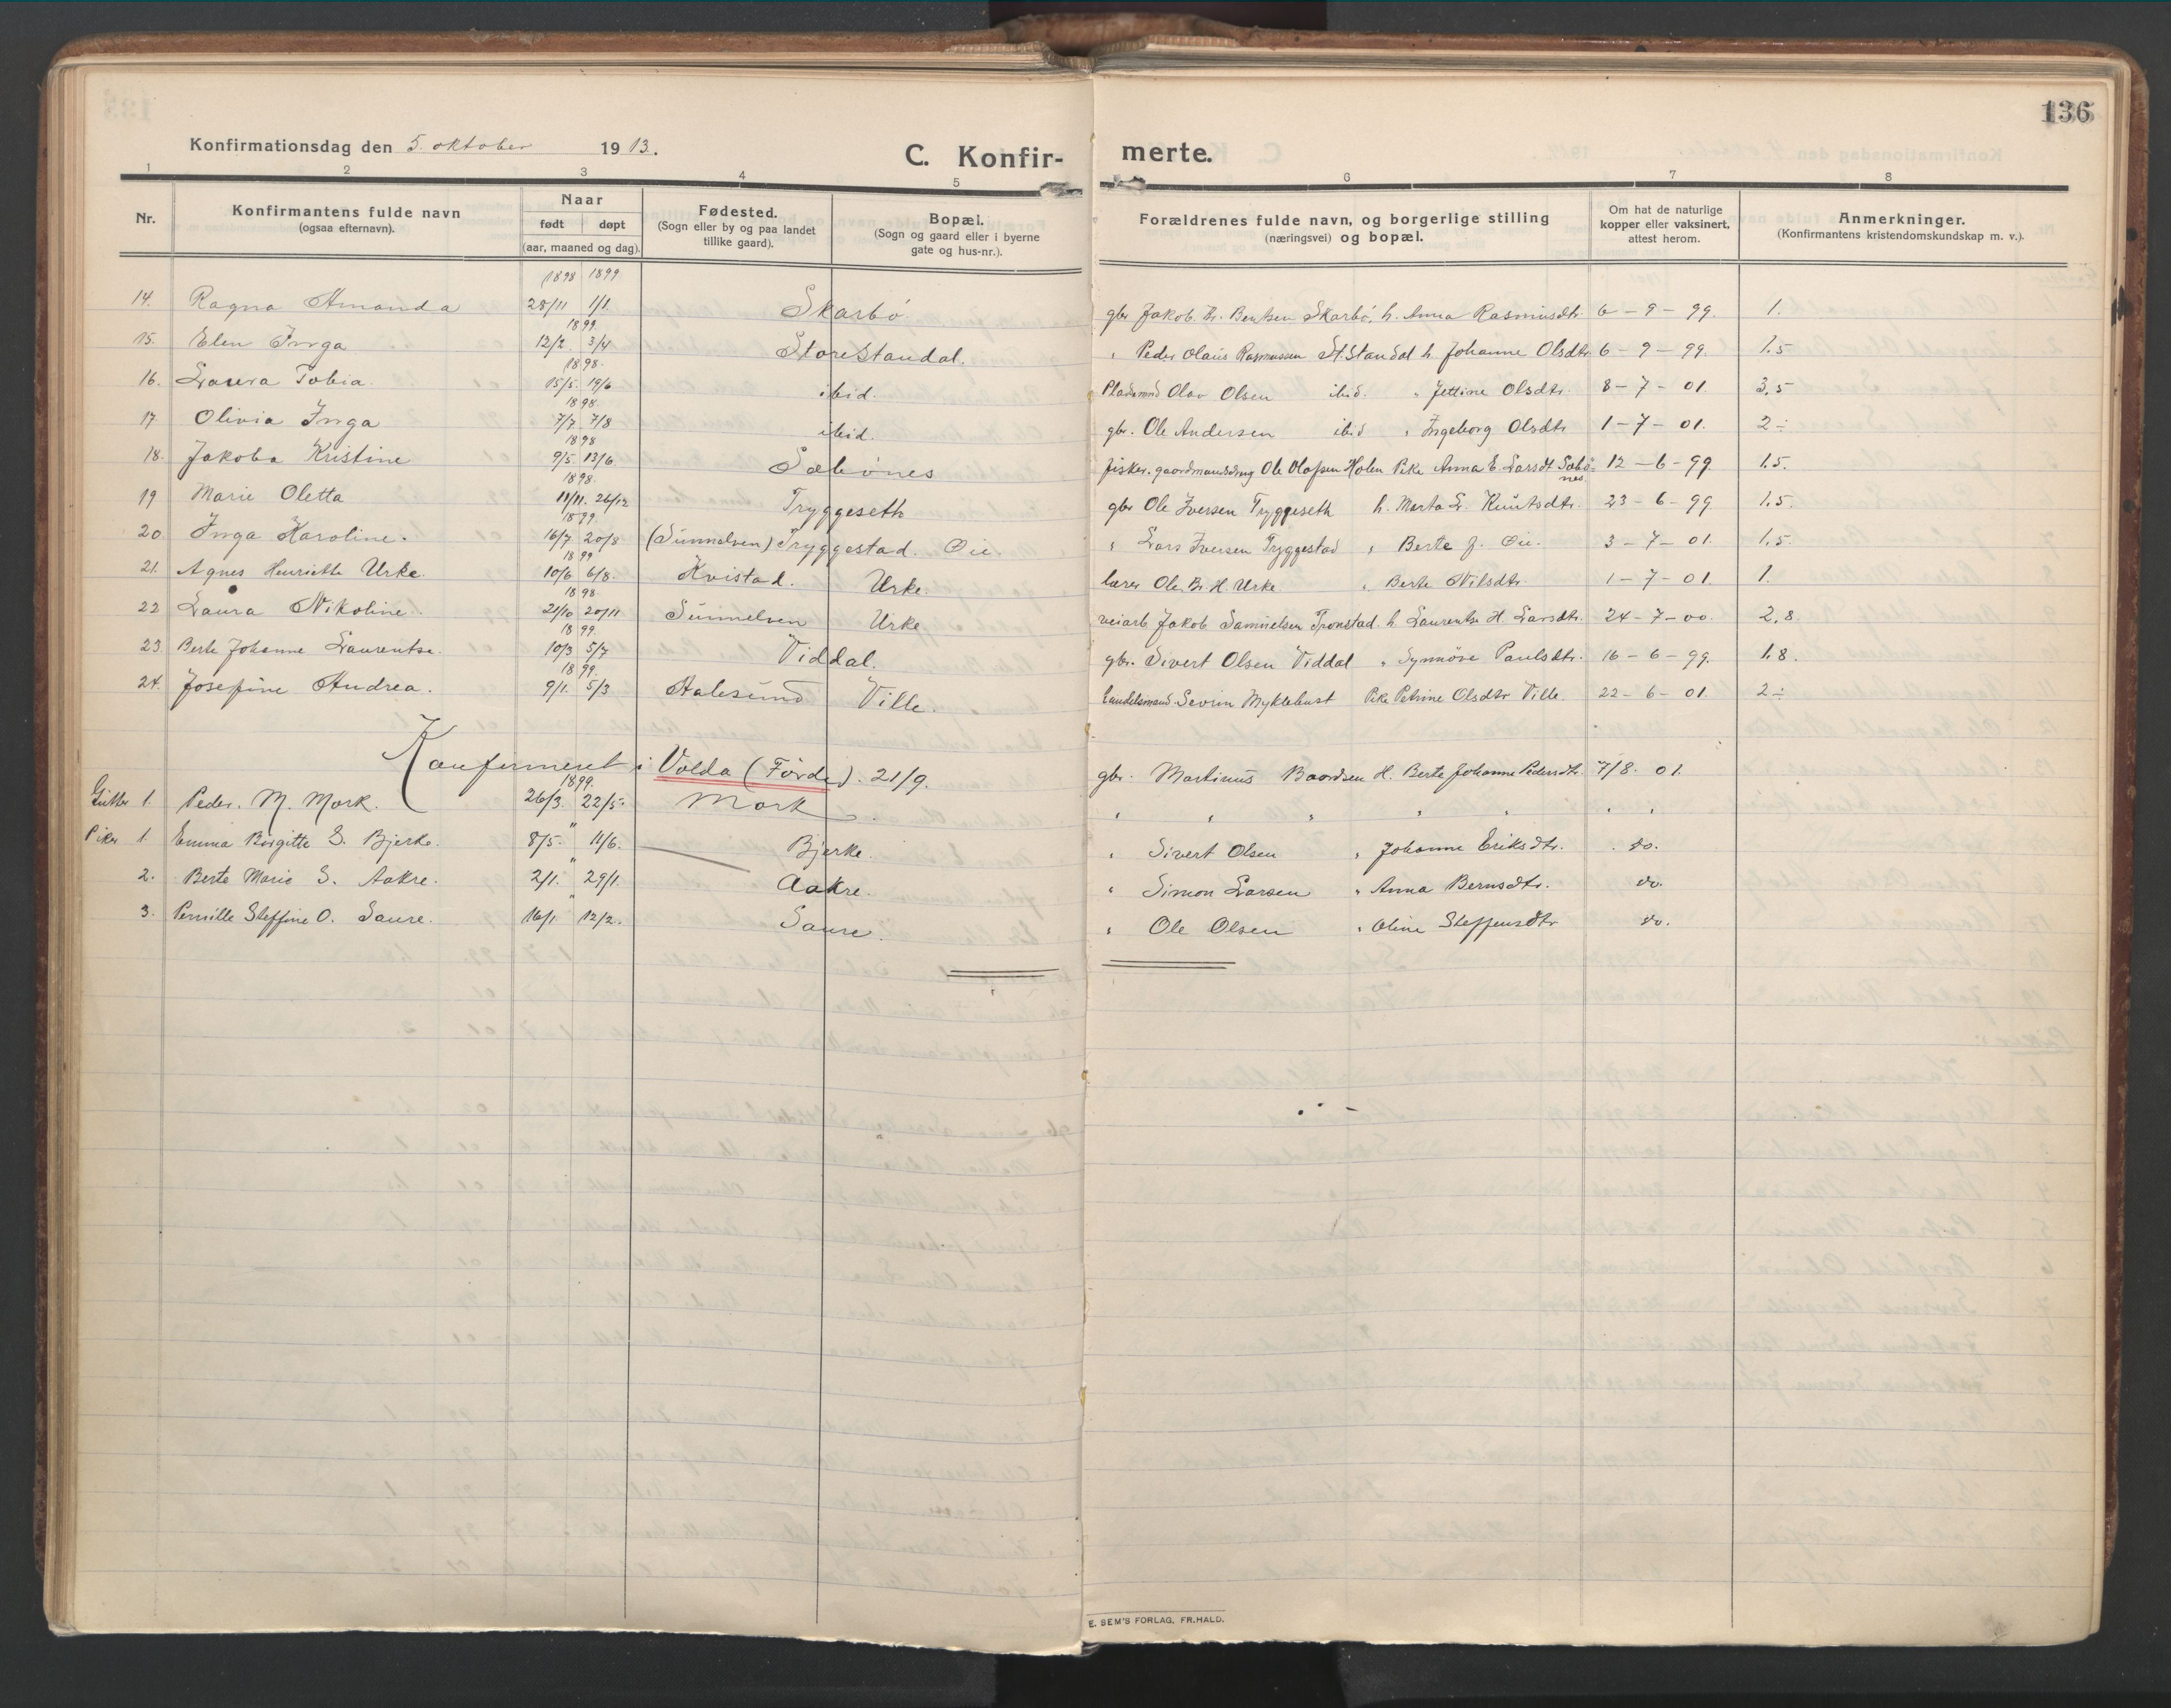 136
Konfirmationsdag den 5. oktober 1913.
C. Konfir- merte.
1 2 3 4 5 6 7 8
Nr.
Konfirmantens fulde navn
(ogsaa efternavn).
Naar
født døpt
(aar, maaned og dag).
Fødested.
(Sogn eller by og paa landet
tillike gaard).
Bopæl.
(Sogn og gaard eller i byerne
gate og hus-nr.).
Forældrenes fulde navn, og borgerlige stilling
(næringsvei) og bopæl.
Om hat de naturlige
kopper eller vaksinert,
attest herom.
Anmerkninger.
(Konfirmantens kristendomskundskap m. v.).
1898 1899
14. Ragna Amanda 28/11 1/1. Skarbö gbr Jakob Br. Bentsen Skarbö, h. Anna Rasmusdtr. 6-9-99. 1.
1899
15. Elen Inga 12/2. 3/4 Storestandal. " Peder Olaus Rasmussen St. Standal h. Johanne Olsdtr. 6-9-99. 1.5
1898.
16. Laura Tobia. 15/5. 19/6 ibid. Pladsmd Olav Olsen ibid. " Jettine Olsdtr. 8-7-01. 3,5
1898.
17 Olivia Inga 7/7 7/8 ibid. gbr. Ole Andersen ibid " Ingeborg Olsdtr 1-7-01. 2÷
1898
18. Jakoba Kristine 9/5. 13/6. Sæbönes fisker. gaardmandsdrug Ole Olafsen Holen Pike Anna E. Larsdt Sæbö- 12-6-99. 1.5.
nes.
1898.
19 Marie Oletta 11/11. 26/12 Tryggeseth gbr Ole Iversen Tryggeseth h. Marta L. Knutsdtr. 23-6-99 1.5.
1899.
20 Inga Karoline. 16/7 20/8 (Sunnelven) Tryggestad. Öie. " Lars Iversen Tryggestad " Berte J. Öie. 3-7-01. 1,5.
1899
21. Agnes Henriette Urke. 10/6 6/8. Kvistad. Urke. lærer Ole Br. H. Urke. " Berte Nilsdtr. 1-7-01. 1.
1898.
22 Laura Nikoline. 21/10 20/11 Sunnelven Urke veiarb Jakob Samuelsen Tronstad. h Laurentse H. Larsdtr. 24-7-00. 2,8.
1899.
23. Berte Johanne Laurentse. 10/3 5/7 Viddal. gbr. Sivert Olsen Viddal " Synnöve Paulsdtr. 16-6-99. 1.8.
1899.
24. Josefine Andrea. 9/1. 5/3 Aalesund Ville. handelsmand Sevrin Myklebust Pike Petrine Olsdtr Ville. 22-6-01. 2÷
Konfirmeret i Volda (Förde). 21/9. gbr. Martinus Baardsen H. Berte Johanne Pedersdtr. 7/8. 01.
1899.
Gutter 1. Peder. M. Mork. 26/3. 22/5. Mork. " " " " " " "
Piker 1. Emma Birgitte S. Bjerke. 8/5. " 11/6. Bjerke. " Sivert Olsen " Johanne Eriksdtr. do.
2. Berte Marie S. Aakre. 2/1. " 29/1. Aakre. " Simon Larsen " Anna Berns dtr. do.
3. Pernille Steffine O. Saure. 16/1. " 12/2. Saure. " Ole Olsen " Oline Steffensdtr do.
E. SEM'S FORLAG, FR.HALD.